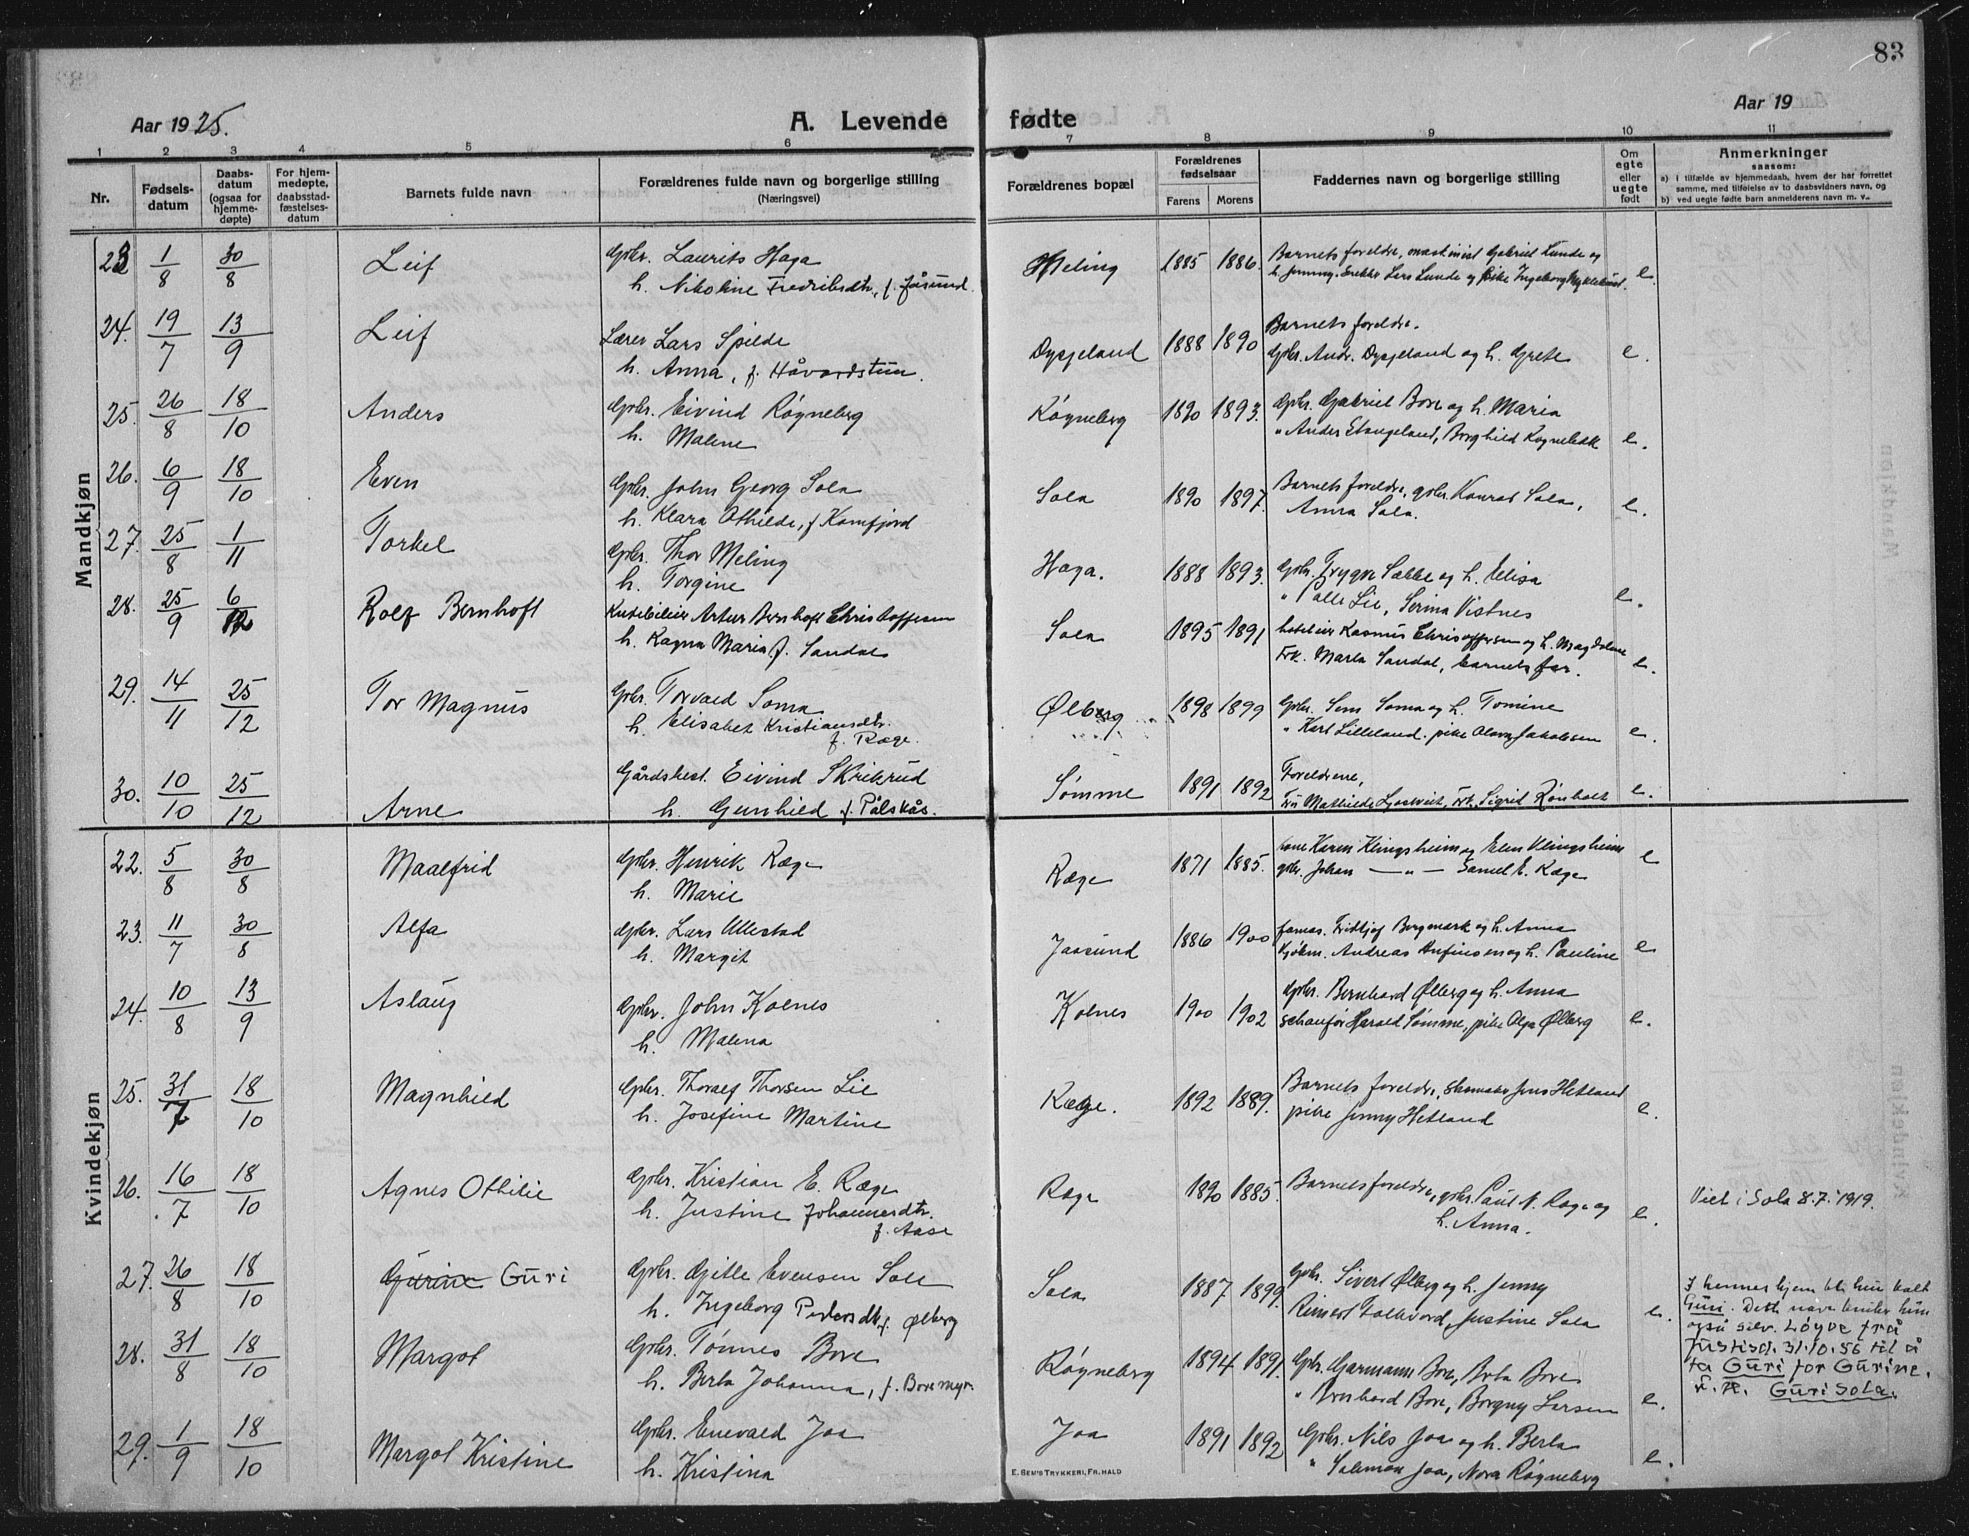 83
Aar 1925.
A. Levende fødte
Aar 19
1 2 3 4 5 6 7 8 9 10 11
Nr.
Fødsels-
datum
Daabs-
datum
(ogsaa for
hjemme-
døpte)
For hjem-
medøpte,
daabsstad-
fæstelses-
datum
Barnets fulde navn
Forældrenes fulde navn og borgerlige stilling
(Næringsvei)
Forældrenes bopæl
Forældrenes
fødselsaar
Farens Morens
Faddernes navn og borgerlige stilling
Om
egte
eller
uegte
født
Anmerkninger
saasom:
a) i tilfælde av hjemmedaab, hvem der har forrettet
samme, med tilføielse av to daabsvidners navn, og
b) ved uegte fødte barn anmelderens navn m. v.
Mandkjøn
23 1/8 30/8 Leif Gbr. Laurits Haga Meling 1885 1886. Barnets foreldre, maskinist Gabriel Lunde og e.
h. Nikoline Fredriksdtr, f. Jåsund. h. Jenny, Lars Lunde og pike Ingeborg
24. 19/7 13/9 Leif Lærer Lars Spilde Dysjeland 1888 1890 Barnets foreldre. e.
h. Anna, f. Håvardstun. Gbr. Andr. Dysjeland og h. Grete
25. 26/8 18/10 Anders Gbr. Eivind Røyneberg Røyneberg 1890 1893. Gbr. Gabriel Bore og h. Maria e.
h. Malene " Anders Stangeland, Borghild
26. 6/9 18/10 Even Gbr. John Georg Sola Sola 1890 1897. Barnets foreldre, gbr. Konrad Sola, e.
h. Klara Othilde, f. Anna Sola.
27. 25/8 1/11 Torkel Gbr. Thor Meling Haga. 1888 1893. Gbr. Trygve Sække og h. Elisa e.
h. Torgine " Palle Lie, Serina Vistnes
28. 25/9 6/12 Rolf Bernhoft Artur Bernhoft Christoffersen Sola 1895 1891 Rasmus Christoffersen og h. Magdalene e.
h. Ragna Maria f. Sandal Frk. Marta Sandal, barnets far.
29. 14/11 25/12 Tor Magnus Gbr. Torvald Soma Ølberg 1898 1899 Gbr. Sem Soma og h. Tomine e.
h. Elisabet Kristiansdtr. " Karl Lilleland. pike Olava Jakobsen
f. Ræge.
30. 10/10 25/12 Arne Gårdsbest. Eivind Skrikrud Sømme 1891 1892 Foreldrene, e.
h. Gunhild f. Pålskås. Fru Mathilde Frk. Sigrid Rønholt
Kvindekjøn
22. 5/8 30/8 Maalfrid Gbr. Henrik Ræge Ræge 1871 1885. kone Karen Klingsheim og Elen Klingsheim e
h. Marie gbr. Johan — " — Samuel E. Ræge
23. 11/7 30/8 Alfa Gbr. Lars Ullestad Jaasund 1886 1900 Fridtjof Bergmark og h. Anna e
h. Margit Andreas Anfinsen og h. Pauline
24. 10/8 13/9 Aslaug Gbr. John Kolnes Kolnes 1900 1902 Gbr. Bernhard Ølberg og h. Anna e.
h. Malena schauffør Harald Sømme, pike Olga Ølberg
25. 31/7 18/10 Magnhild Gbr. Thoralf Thorsen Lie Ræge. 1892 1889. Barnets foreldre, skomaker Jens Hetland e.
h. Josefine Martine pike Jenny Hetland
26. 16/7 18/10 Agnes Othilie Gbr. Kristian E. Ræge Ræge 1890 1885. Barnets foreldre, gbr. Paul N. Ræge og e. Viet i Sola 8.7.1919.
h. Justine Johannesdtr. h. Anna.
f. Aase
27. 26/8 18/10 Gurine Guri Gbr. Gitle Evensen Sola Sola 1887 1899. Gbr. Sivert Ølberg og h. Jenny e.
h. Ingeborg Pedersdtr f. Ølberg Reinert Folkvord, Justine Sola
I hennes hjem ble hun kalt
Guri. Dette navn bruker hun
også selv. Løyve frå
Justisd. 31.10.56 til å
ta Guri for Gurine.
Guri Sola.
28. 31/8 18/10 Margot Gbr. Tønnes Bore Røyneberg 1894 1891. Gbr. Garmann Bore, Berta Bore e.
h. Berta Johanna, f. Boremyr. " Bernhard Bore, Borgny Larsen
29. 1/9 18/10 Margot Kristine Gbr. Enevald Joa Joa 1891 1892 Gbr. Nils Joa og h. Berta e.
h. Kristina " Salamon Joa, Nora Røyneberg
E. SEM'S TRYKKERI, FR.HALD